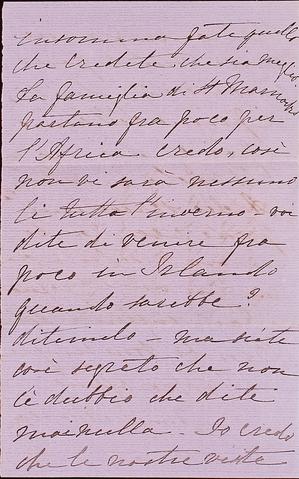 insomma fate quello
che credete, che sia meglio
La famiglia di St
partano fra poco per
l'Africa credo, così
non vi sarà nessuno
lì tutto l'inverno - voi
dite di venire fra
poco in Islanda
quando sarebbe?
ditemelo - ma siete
così segreto che non
c'è dubbio che dite
mai nulla - Io credo
che le nostre viste